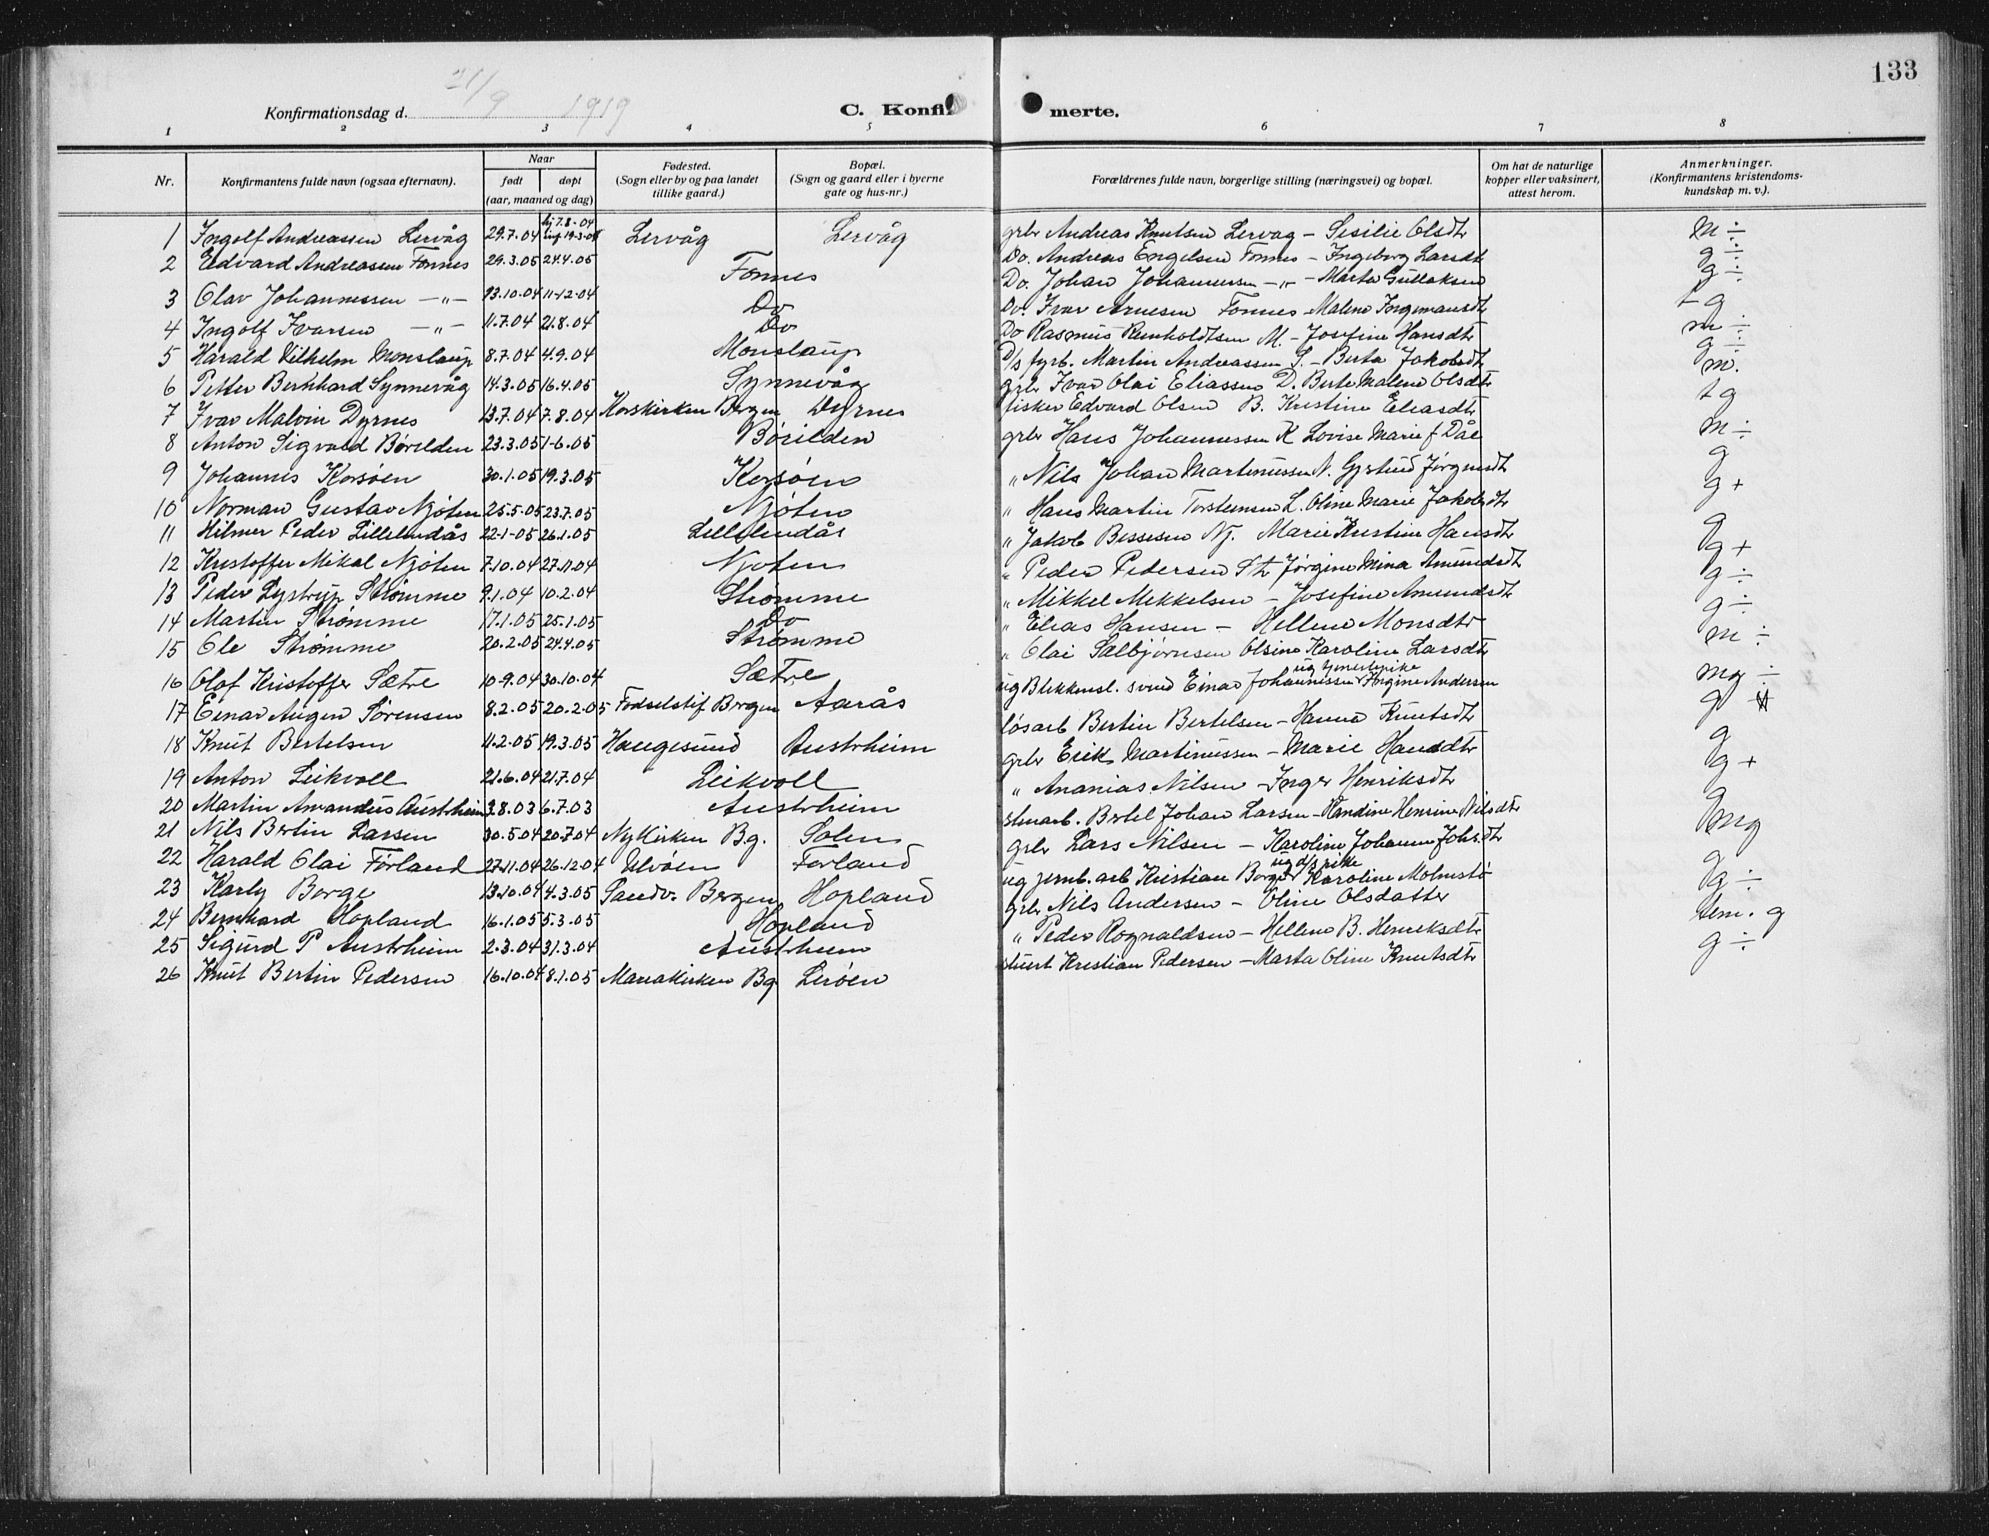 133
Konfirmationsdag d. 21/9 1919
C. Konfirmerte.
1 2 3 4 5 6 7 8
Nr. Konfirmantens fulde navn (ogsaa efternavn). Naar født døpt (aar, maaned og dag) Fødested. (Sogn eller by og paa landet tillike gaard.) Bopæl. (Sogn og gaard eller i byerne gate og hus-nr.) Forældrenes fulde navn, borgerlige stilling (næringsvei) og bopæl. Om hat de naturlige kopper eller vaksinert, attest herom. Anmerkninger. (Konfirmantens kristendomskundskap m. v.).
1 Ingolf Andreassen Lervåg 29.7.04 hj 7.8-04 Lervåg Lervåg grbr Andreas Knutsen Lervag - Sesilie Olsdtr m ÷
2 Edvard Andreassen Fonnes 29.3.05 24.4.05 Fonnes Do. Andreas Engelsen Fonnes - Ingeborg Larsdtr g ÷
3 Olav Johannessen -"- 13.10.04 11-12-04 Do Do. Johan Johannessen -"- Marta Gullaksen g ÷
4 Ingolf Ivarsen -"- 11.7.04 21.8.04 Do Do. Ivar Arnesen Fonnes - Malene Ingemansdtr t g
5 Harald Vilhelm Monslaup 8.7.04 4.9.04 Monslaup Do Rasmus Reinholdtsen M. - Josefine Hansdtr m ÷
6 Petter Bernhard Synnevåg 14.3.05 16.4.05 Synnevåg D/s fyrb. Martin Andreassen S. - Berta Jakobsdtr g ÷
7 Ivar Malvin Dyrnes 13.7.04 7.8.04 Korskirken Bergen Dyrnes grbr Ivar Olai Eliassen D. Berte Malene Olsdtr m.
8 Anton Sigvald Børilden 23.3.05 1-6.05 Børilden fisker Edvard Olsen B. Kristine Eliasdtr t g
9 Johannes Korsøen 30.1.05 19.3.05 Korsøen grbr Hans Johannessen K Lovise Marie f Dåe m ÷
10 Norman Gustav Njøten 25.5.05 23.7.05 Njøten " Nils Johan Martinussen N. Gjertrud Jørgensdtr g
11 Hilmer Peder Lillelindås 22-1-05 26.1.05 Lillelindås " Hans Martin Torsteinsen L. Oline Marie Jakobsdtr g +
12 Kristoffer Mikal Njøten 7.10.04 27.11.04 Njoten " Jakob Bessesen Nj. Marie Kristine Hansdtr g
13 Peder Lystrup Strømme 9.1.04 10.2.04 Strømme " Peder Pedersen Str Jørgine Mina Amundsdtr g +
14 Martin Strømme 17.1.05 25.1.05 Do " Mikkel Mikkelsen - Josefine Amundsdtr g ÷
15 Ole Strømme 20.2.05 24.4.05 Strømme " Elias Hansen - Hellene Monsdtr g ÷
16 Olaf Kristoffer Sætre 10.9.04 30.10.04 Sætre " Olai Sælbjørnsen Olsine Karoline Larsdtr m ÷
17 Einar Angen Sørensen 8.2.05 20.2.05 Fødselstif Bergen Aarås ug Blikkensl. svend Einar Johannessen Jørgine Andersen mg ÷
18 Knut Bertelsen 11.2.05 19.3.05 Haugesund Austrheim løsarb Bertin Bertelsen - Hanna Knutsdtr g
19 Anton Leikvoll 21.6.04 21.7.04 Leikvoll grbr Erik Martinussen - Marie Hansdtr g
20 Martin Amandus Austrheim 3.8.03 6.7.03 Austrheim " Ananias Nilsen - Inger Henriksdtr g +
21 Nils Bertin Larsen 30.5.04 20.7.04 Nykirken Bg. Solem stenarb. Bertel Johan Larsen - Handine Hensine Nilsdtr g
22 Harald Olai Førland 27.11.04 26.12.04 Ulvøen Førland grbr Lars Nilsen - Karoline Johanne Johsdtr mg
23 Karly Borge 13.10.04 4.3.05 Sandv. Bergen Hopland ug jernb. arb Kristian Borge ug d/s pike Karoline Molmstø g
24 Bernhard Hopland 16.1.05 5.3.05 Hopland grbr Nils Andersen - Oline Olsdatter g ÷
25 Sigurd P Austrheim 2.3.04 31.3.04 Austrheim " Peder Rognaldsen - Hellene B. Henriksdtr tem. g
26 Knut Bertin Pedersen 16.10.04 8.1.05 Mariakirken Bg Lerøen stuert Kristian Pedersen - Marta Oline Knutsdtr g ÷